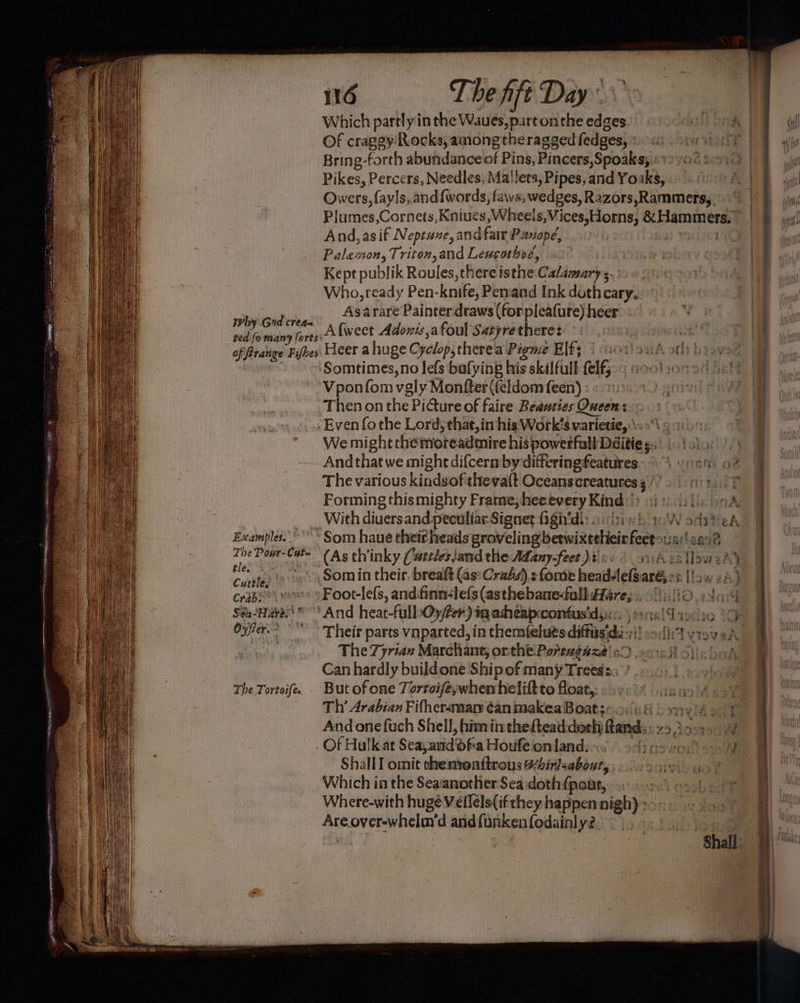 116 The fift Day
Which partly in the Waues, part on the edges
Of craggy Rocks, among the ragged sedges,
Bring-forth abundance of Pins, Pincers, Spoaks,
Pikes, Percers, Needles, Mallets, Pipes, and Yoaks,
Owers, sayls, and swords, saws, wedges, Razors, Rammers,
Plumes, Cornets, Kniues, Wheels, Vices, Horns, & Hammers.
And, as if Neptune, and fair Panopé,
Palæmon, Triton, and Leucothoé,
Kept publik Roules, there is the Calamary;
Who, ready Pen-knife, Pen and Ink doth cary.
As a rare Painter draws (for pleasure) heer
Why God crea-
A sweet Adonis, a foul Satyre there:
ted so many sorts
Heer a huge Cyclop, there a Pigmé Elf;
of strange Fishes
Somtimes, no less busying his skilfull self,
Vpon som vgly Monster (seldom seen)
Then on the Picture of faire Beauties Queen:
Even so the Lord, that, in his Work's varietie,
We might the more admire his powerfull Déitie;
And that we might discern by differing features
The various kinds of the vast Oceans creatures;
Forming this mighty Frame, hee every Kind
With diuers and peculiar Signet sign'd:
Examples.
Som haue their heads groveling betwixt their feet
The Pour-Cut-
tle.
(As th'inky Cuttles, and the Many-feet)
Cuttle,
Som in their breast (as Crabs): some head-less are,
Crab:
Foot-less, and finn-less (as the bane-full Hare,
Sea-Hare:
And heat-full Oyster) in a heap confus'd,
Oyster.
Their parts vnparted, in themselues diffus'd:
The Tyrian Marchant, or the Portugaze
Can hardly build one Ship of many Trees:
The Tortoise.
But of one Tortoise, when he list to float,
Th' Arabian Fisher-man can make a Boat;
And one such Shell, him in the stead doth stand
Of Hulk at Sea, and of a House on land.
Shall I omit the monstrous Whirl-about,
Which in the Sea another Sea doth spout,
Where-with huge Vessels (if they happen nigh)
Are over-whelm'd and sunken sodainly?
Shall